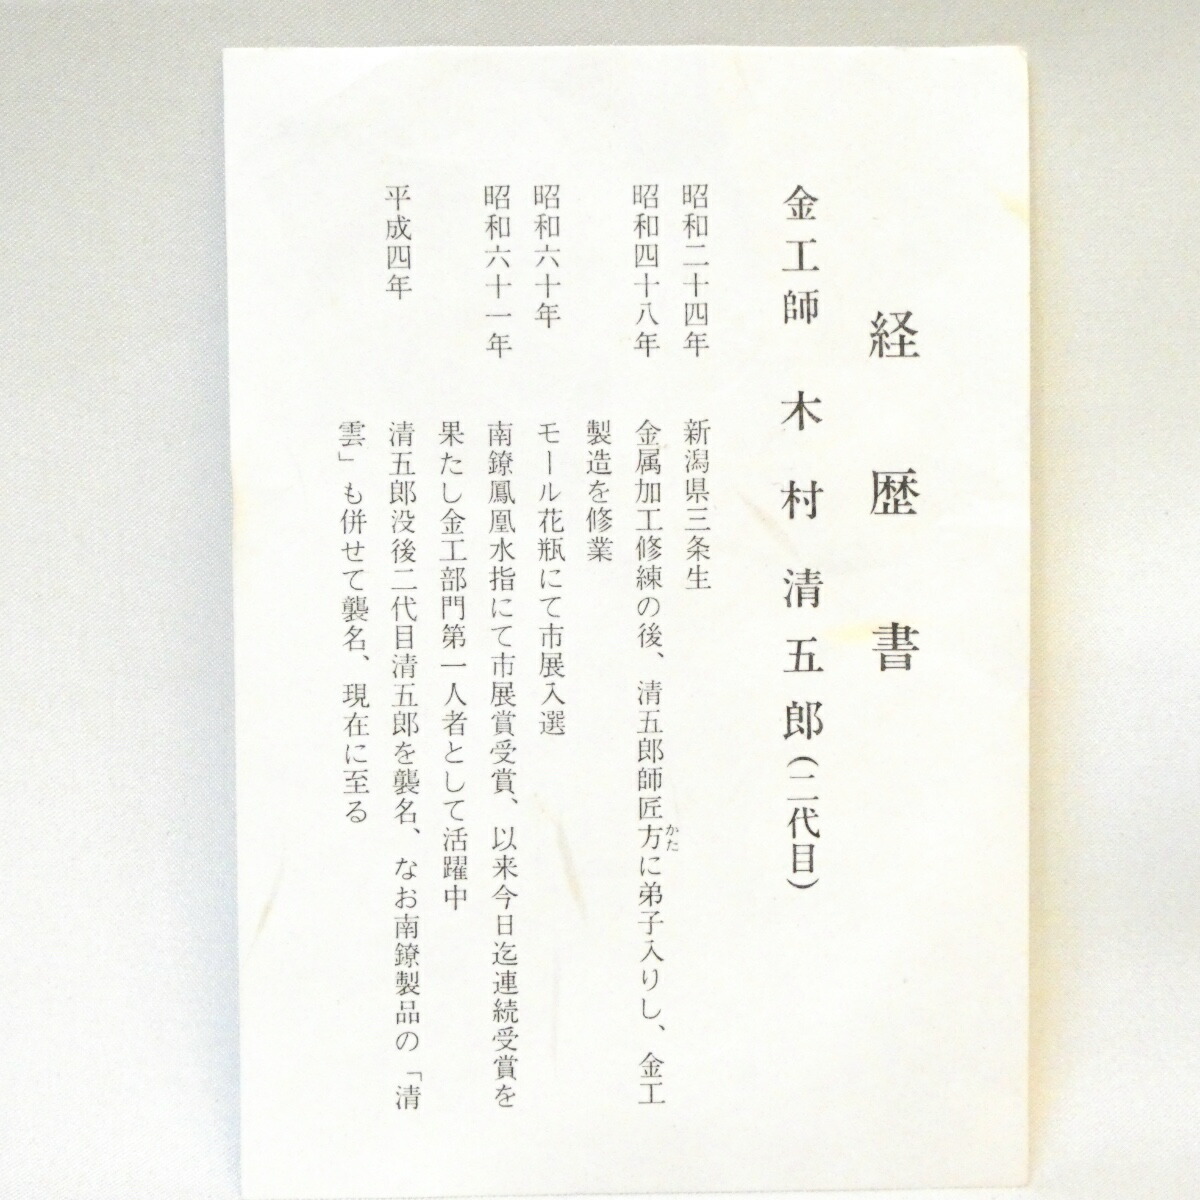 経歴書
金工師 木村清五郎(二代目)
昭和二十四年 新潟県三条生
昭和四十八年 金属加工修練の後、清五郎師匠方かたに弟子入りし、金工
製造を修業
昭和六十年 モール花瓶にて市展入選
昭和六十一年 南鐐鳳凰水指にて市展賞受賞、以来今日迄連続受賞を
果たし金工部門第一人者として活躍中
平成四年 清五郎没後二代目清五郎を襲名、なお南鐐製品の「清
雲」も併せて襲名、現在に至る